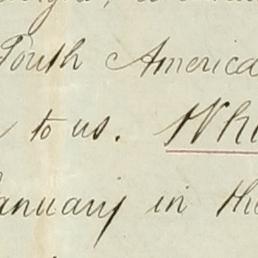 South America
to us. Whi
January in the